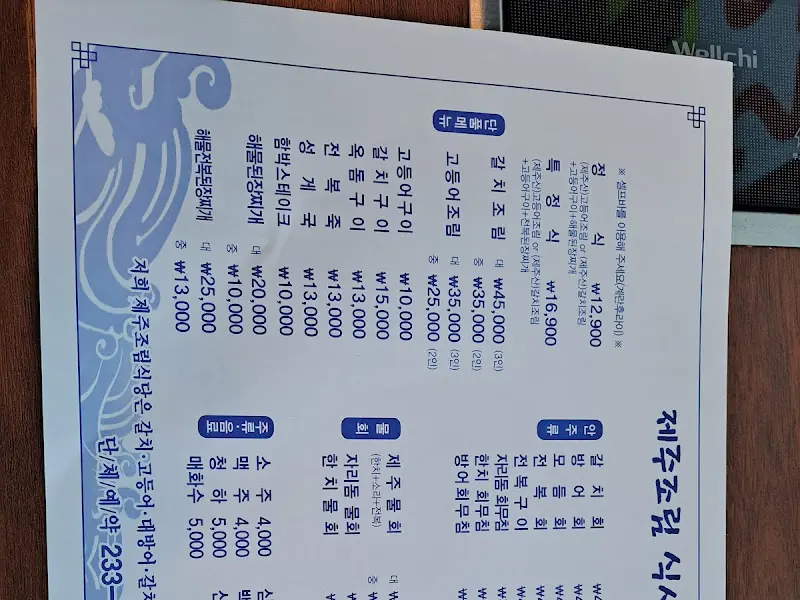 Wellchi
제주조림 식
※ 셀프바를 이용해 주세요(계란후라이) ※
정 식 ₩12,900
(제주산)고등어조림 or (제주산)갈치조림
+고등어구이+해물된장찌개
특 정 식 ₩16,900
(제주산)고등어조림 or (제주산)갈치조림
+고등어구이+전복된장찌개
단품메뉴
갈치조림 대 ₩45,000 (3인)
중 ₩35,000 (2인)
고등어조림 대 ₩35,000 (3인)
중 ₩25,000 (2인)
고등어구이 ₩10,000
갈치구이 ₩15,000
옥돔구이 ₩13,000
전복죽 ₩13,000
성게국 ₩13,000
함박스테이크 ₩10,000
해물된장찌개 대 ₩20,000
중 ₩10,000
해물전복된장찌개 대 ₩25,000
중 ₩13,000
안주류
갈치회
방어회
모듬회
전복회
전복구이
자리돔 회무침
한치 회무침
방어 회무침
물회
제주물회 대
(한치+소라+전복) 중
자리돔 물회
한치 물회
주류·음료
소주 4,000
맥주 4,000
청하 5,000
매화수 5,000
저희 제주조림식당은 갈치·고등어·대방어·갈치
단/체/예/약 233-